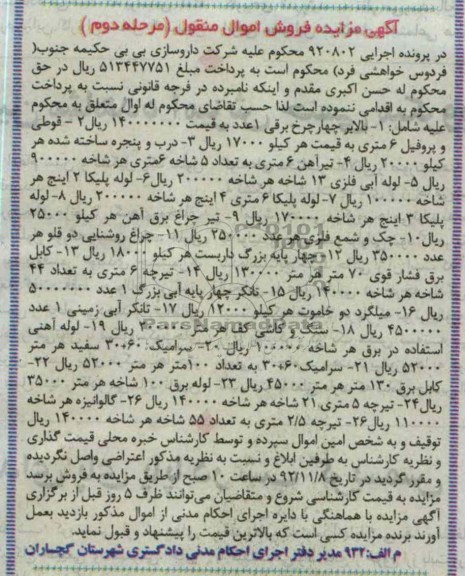 آگهی مزایده فروش اموال منقول (مرحله دوم)
در پرونده اجرایی ۹۲۰۸۰۲ محکوم علیه شرکت داروسازی بی بی حکیمه جنوب(
فردوس خواهشی فرد) محکوم است به پرداخت مبلغ ۵۱۳۴۴۷۷۵۱ ریال در حق
محکوم له حسن اکبری مقدم و اینکه نامبرده در فرجه قانونی نسبت به پرداخت
محکوم به اقدامی ننموده است لذا حسب تقاضای محکوم له اوال متعلق به محکوم
علیه شامل: ۱- بالابر چهارچرخ برقی ۱عدد به قیمت ۱۴۰۰۰۰۰۰۰ ریال۲ - قوطی
و پروفیل ۶ متری به قیمت هر کیلو ۱۷۰۰۰ ریال ۳- درب و پنجره ساخته شده هر
کیلو ۲۰۰۰۰ ریال ۴- تیرآهن ۶ متری به تعداد ۵ شاخه ۶متری هر شاخه ۹۰۰۰۰۰
ریال ۵- لوله آبی فلزی ۱۳ شاخه هر شاخه ۲۰۰۰۰۰ ریال۶- لوله پلیکا ۲ اینچ هر
شاخه ۱۰۰۰۰۰ ریال ۷- لوله پلیکا ۶ متری ۴ اینچ هر شاخه ۲۰۰۰۰۰ ریال ۸- لوله
پلیکا ۳ اینچ هر شاخه ۱۷۰۰۰۰ ریال ۹- تیر چراغ برق آهن هر کیلو ۲۵۰۰۰
ریال۱۰- چک و شمع فلزی هر عدد ۲۵۰۰۰۰ ریال ۱۱- چراغ روشنایی دو قلو هر
عدد ۳۵۰۰۰۰ ریال ۱۲- چهار پایه بزرگ داربست هر کیلو ۱۸۰۰۰ ریال ۱۳- کابل
برق فشار قوی ۷۰ متر هر متر ۱۳۰۰۰۰ ریال ۱۴- تیرچه ۶ متری به تعداد ۴۴
شاخه هر شاخه ۱۴۰۰۰۰ ریال ۱۵- تانکر چهار پایه آبی بزرگ ۱ عدد ۵۰۰۰۰۰۰
ریال ۱۶- میلگرد دو خاموت هر کیلو ۱۲۰۰۰ ریال ۱۷- تانکر آبی زمینی ۱ عدد
۴۵۰۰۰۰۰ ریال ۱۸- سنگ و کاشی کف هر متر ریال ۱۹- لوله آهنی
استفاده در برق هر شاخه ۱۰۰۰۰۰ ریال ۲۰- سرامیک: ۶۰*۳۰ سفید هر متر
۵۲۰۰۰ ریال ۲۱- سرامیک۶۰*۳۰ به تعداد ۱۰۰متر هر متر ۵۲۰۰۰ ریال ۲۲-
کابل برق ۱۳۰ متر هر متر ۴۵۰۰۰ ریال ۲۳- لوله برق ۱۰۰ شاخه هر متر ۳۵۰۰۰
ریال ۲۴- تیرچه ۵ متری ۲۱ شاخه هر شاخه ۱۴۰۰۰۰ ریال ۲۶- گالوانیزه هر شاخه
۱۱۰۰۰۰ ریال۲۶- تیرچه ۲/۵ متری به تعداد ۵۵ شاخه هر شاخه ۱۴۰۰۰۰ ریال
توقیف و به شخص امین اموال سپرده و توسط کارشناس خبره محلی قیمت گذاری
و نظریه کارشناس به طرفین ابلاغ و نسبت به نظریه مذکور اعتراضی واصل نگردیده
و مقرر گردید در تاریخ ۹۲/۱۱/۸ در ساعت ۱۰ صبح از طریق مزایده به فروش برسد
مزایده به قیمت کارشناسی شروع و متقاضیان می‌توانند ظرف ۵ روز قبل از برگزاری
آگهی مزایده با هماهنگی با دایره اجرای احکام مدنی از اموال مذکور بازدید بعمل
آورند برنده مزایده کسی است که بالاترین قیمت را پیشنهاد و قبول نماید.
م الف:۹۳۲ مدیر دفتر اجرای احکام مدنی دادگستری شهرستان گچساران